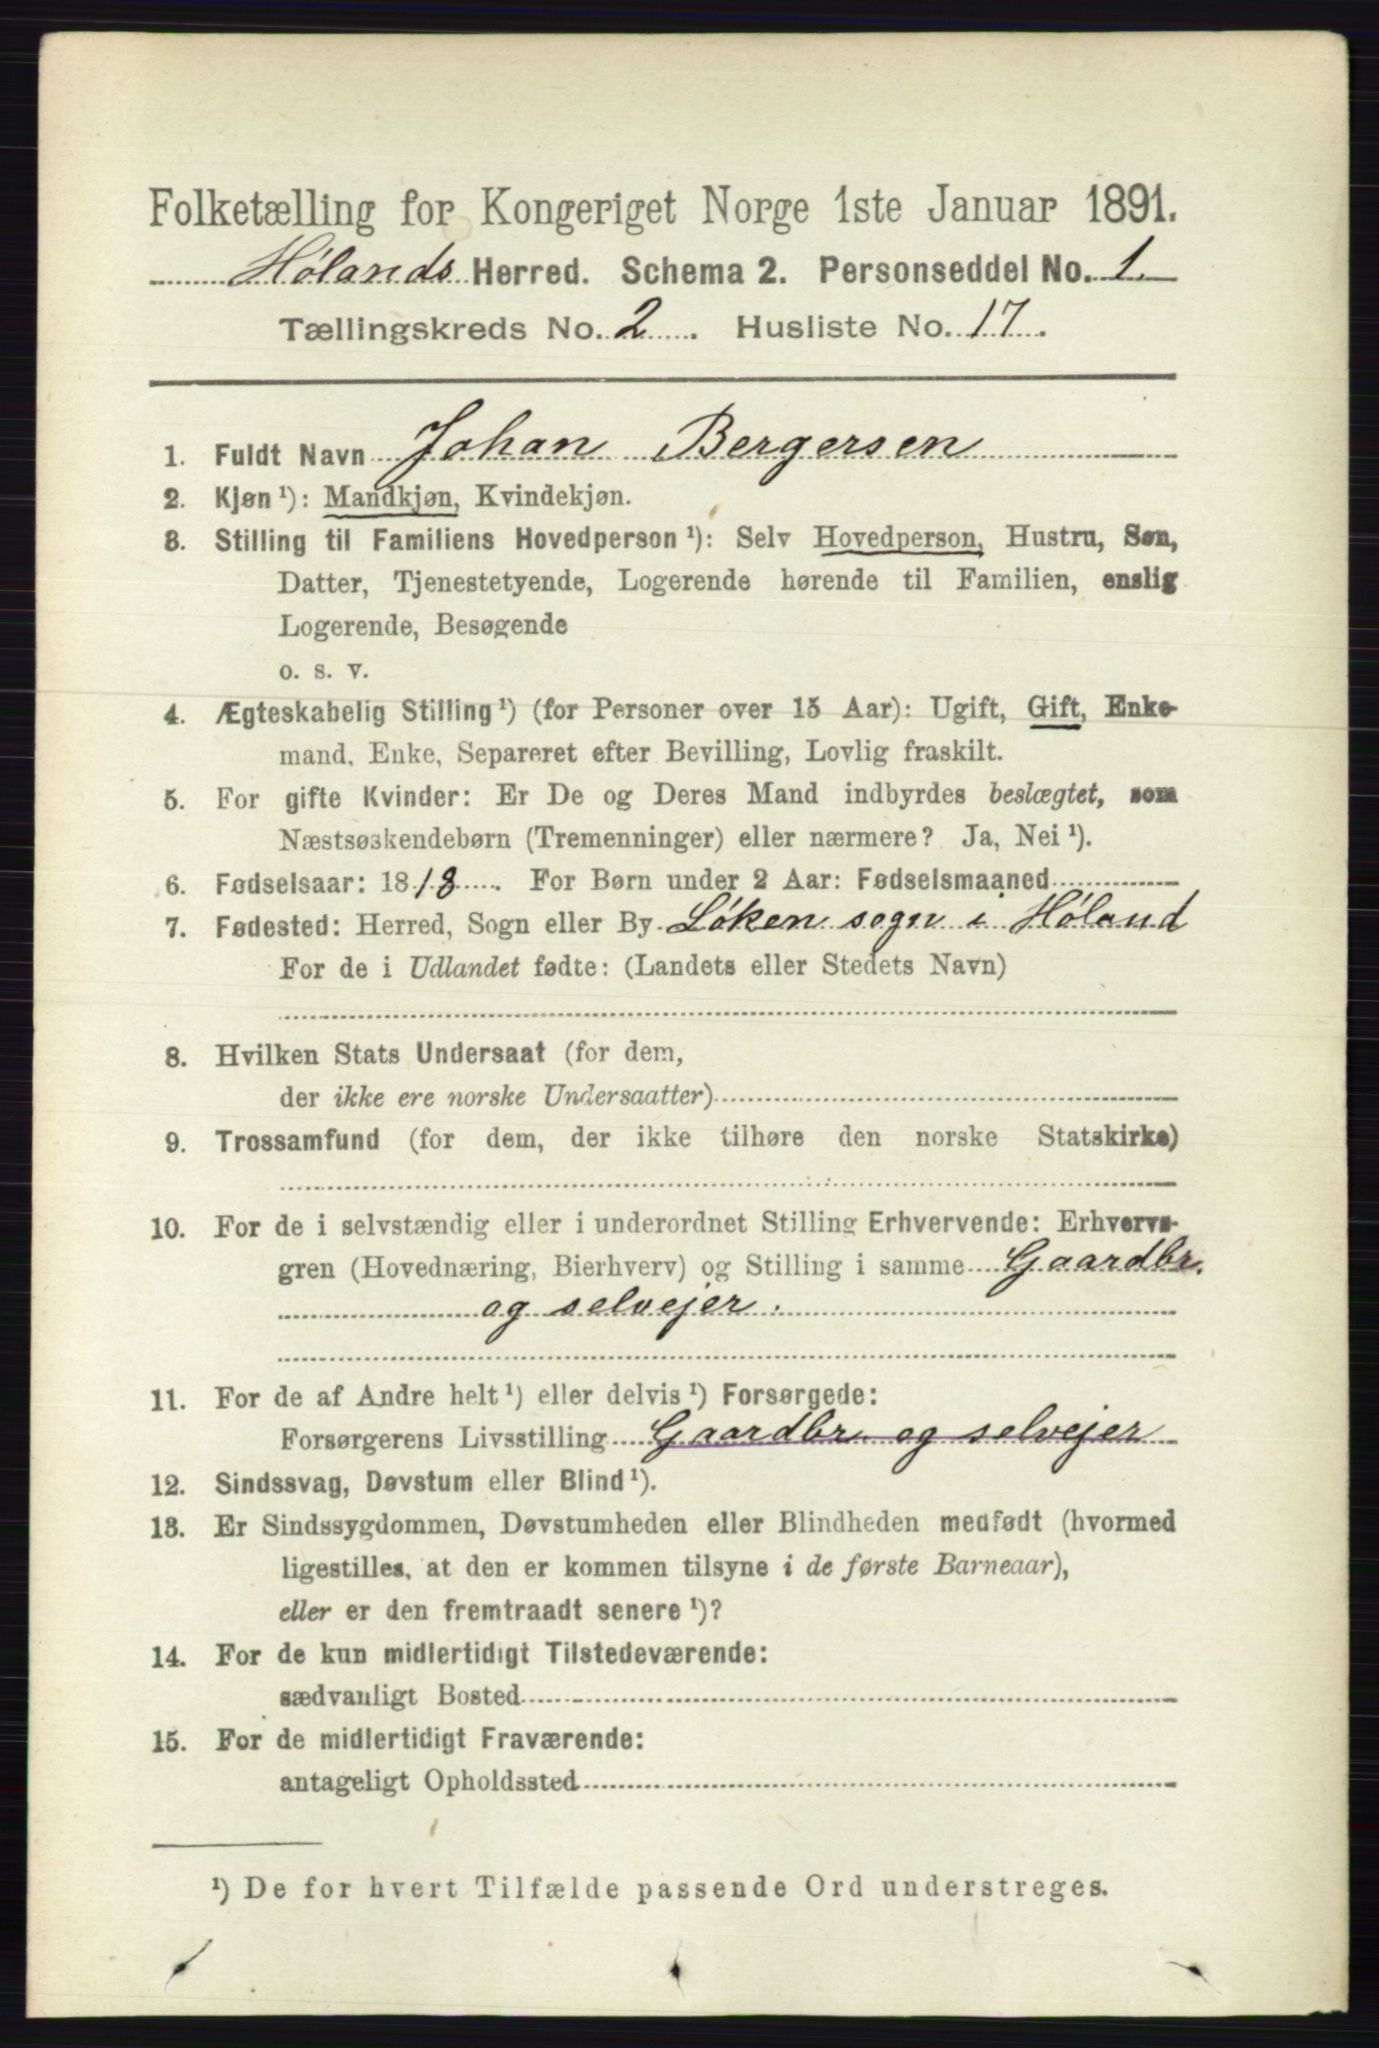 Folketælling for Kongeriget Norge 1ste Januar 1891.
Hølands Herred. Schema 2. Personseddel No. 1.
Tællingskreds No. 2. Husliste No. 17.
1. Fuldt Navn Johan Bergersen
2. Kjøn ¹): Mandkjøn, Kvindekjøn.
3. Stilling til Familiens Hovedperson ¹): Selv Hovedperson, Hustru, Søn,
Datter, Tjenestetyende, Logerende hørende til Familien, enslig
Logerende, Besøgende
o. s. v.
4. Ægteskabelig Stilling ¹) (for Personer over 15 Aar): Ugift, Gift, Enke-
mand, Enke, Separeret efter Bevilling, Lovlig fraskilt.
5. For gifte Kvinder: Er De og Deres Mand indbyrdes beslægtet, som
Næstsøskendebørn (Tremenninger) eller nærmere? Ja, Nei ¹).
6. Fødselsaar: 1818. For Børn under 2 Aar: Fødselsmaaned
7. Fødested: Herred, Sogn eller By Løken sogn i Høland
For de i Udlandet fødte: (Landets eller Stedets Navn)
8. Hvilken Stats Undersaat (for dem,
der ikke ere norske Undersaatter)
9. Trossamfund (for dem, der ikke tilhøre den norske Statskirke)
10. For de i selvstændig eller i underordnet Stilling Erhvervende: Erhvervs-
gren (Hovednæring, Bierhverv) og Stilling i samme Gaardbr.
og selvejer.
11. For de af Andre helt ¹) eller delvis ¹) Forsørgede:
Forsørgerens Livsstilling Gaardbr. og selvejer
12. Sindssvag, Døvstum eller Blind ¹).
13. Er Sindssygdommen, Døvstumheden eller Blindheden medfødt (hvormed
ligestilles, at den er kommen tilsyne i de første Barneaar),
eller er den fremtraadt senere ¹)?
14. For de kun midlertidigt Tilstedeværende:
sædvanligt Bosted
15. For de midlertidigt Fraværende:
antageligt Opholdssted
¹) De for hvert Tilfælde passende Ord understreges.